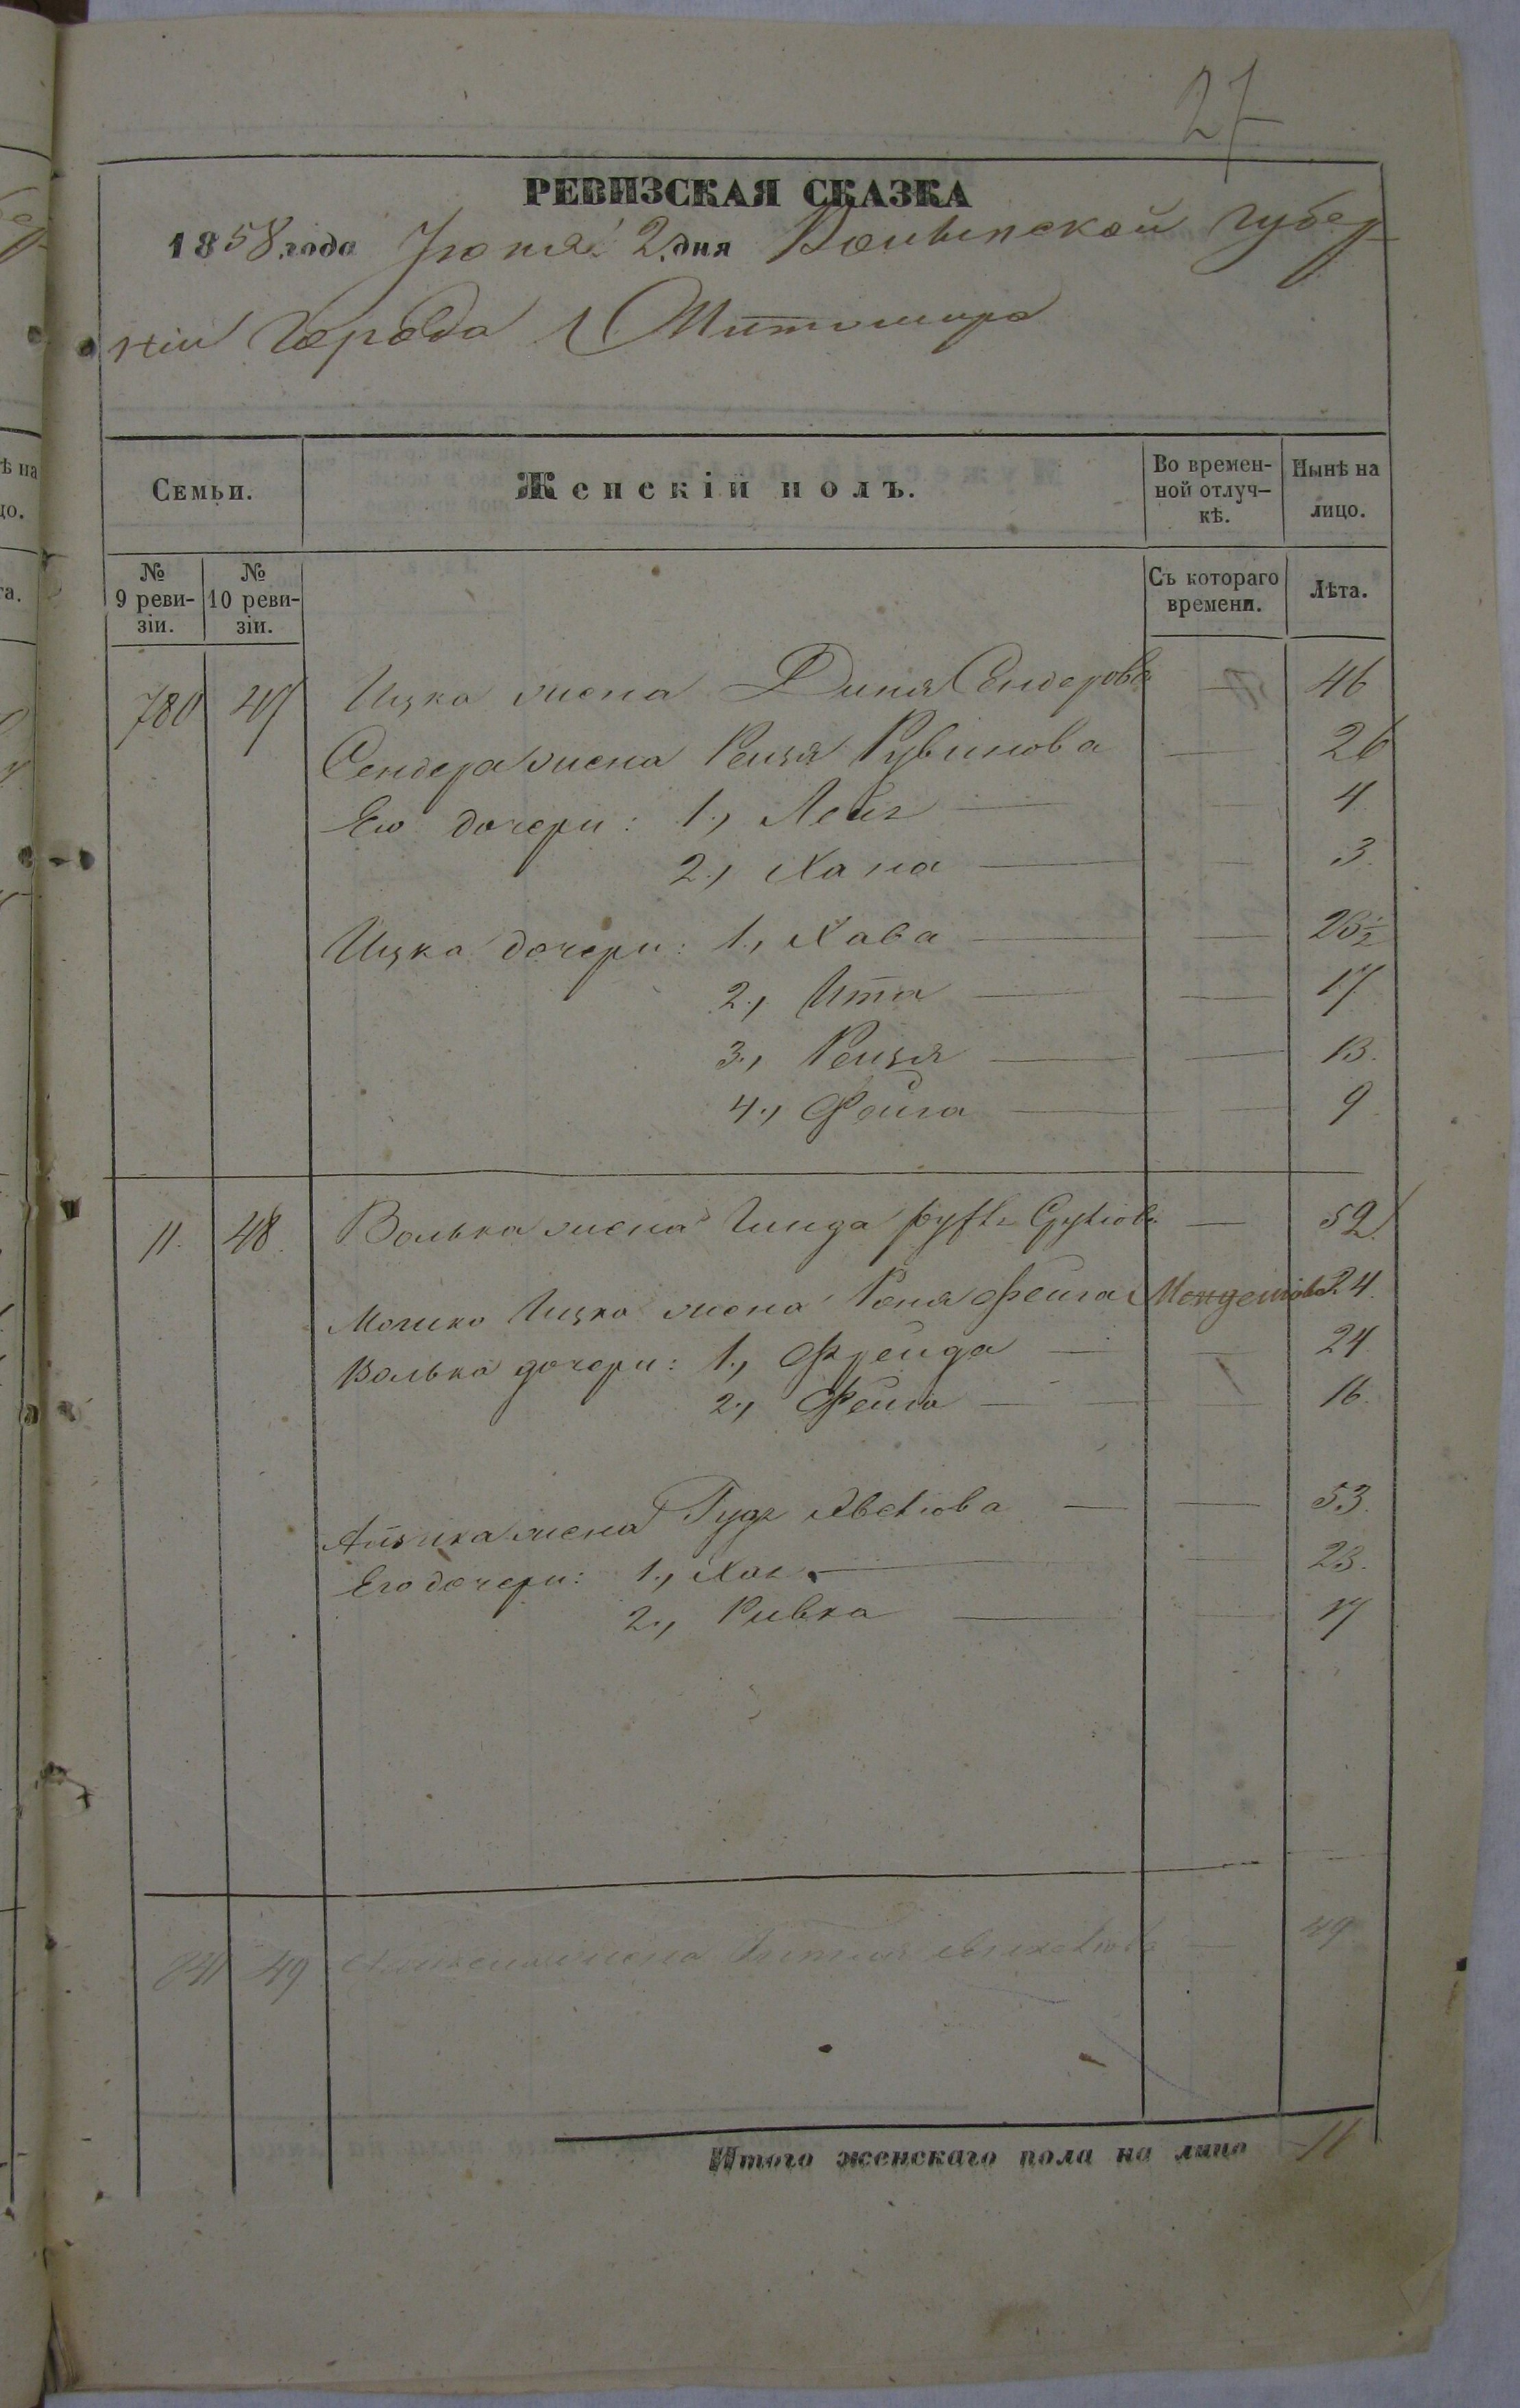 27
РЕВИЗСКАЯ СКАЗКА
1858 года Іюня 2 дня Волынской Губер
ніи Города Житомира
Семьи. Женскій полъ. Во времен- Нынѣ на
ной отлуч- лицо.
кѣ.
№ № Съ котораго Лѣта.
9 реви- 10 реви- времени.
зіи. зіи.
780 47 Ицка жена Диня Сендерова — 46
Сендера жена Рейзя Рувинова — 26
Его дочери: 1., Лея — — 4
2., Хана — — 3.
Ицка дочери: 1., Хава — — 23½
2., Ита — — 17
3., Рейзя — — 13.
4., Фейга — — 9
11. 48. Волька жена — 52.
Мошко Ицка жена Роня Фейга 24.
Волька дочери: 1., Фрейда — — 24
2., Фейга — — 16.
Айзика жена — — 53.
Его дочери: 1., Хая — — 23.
2., Ривка — — 17
49 жена — 49
Итого женскаго пола на лицо 16